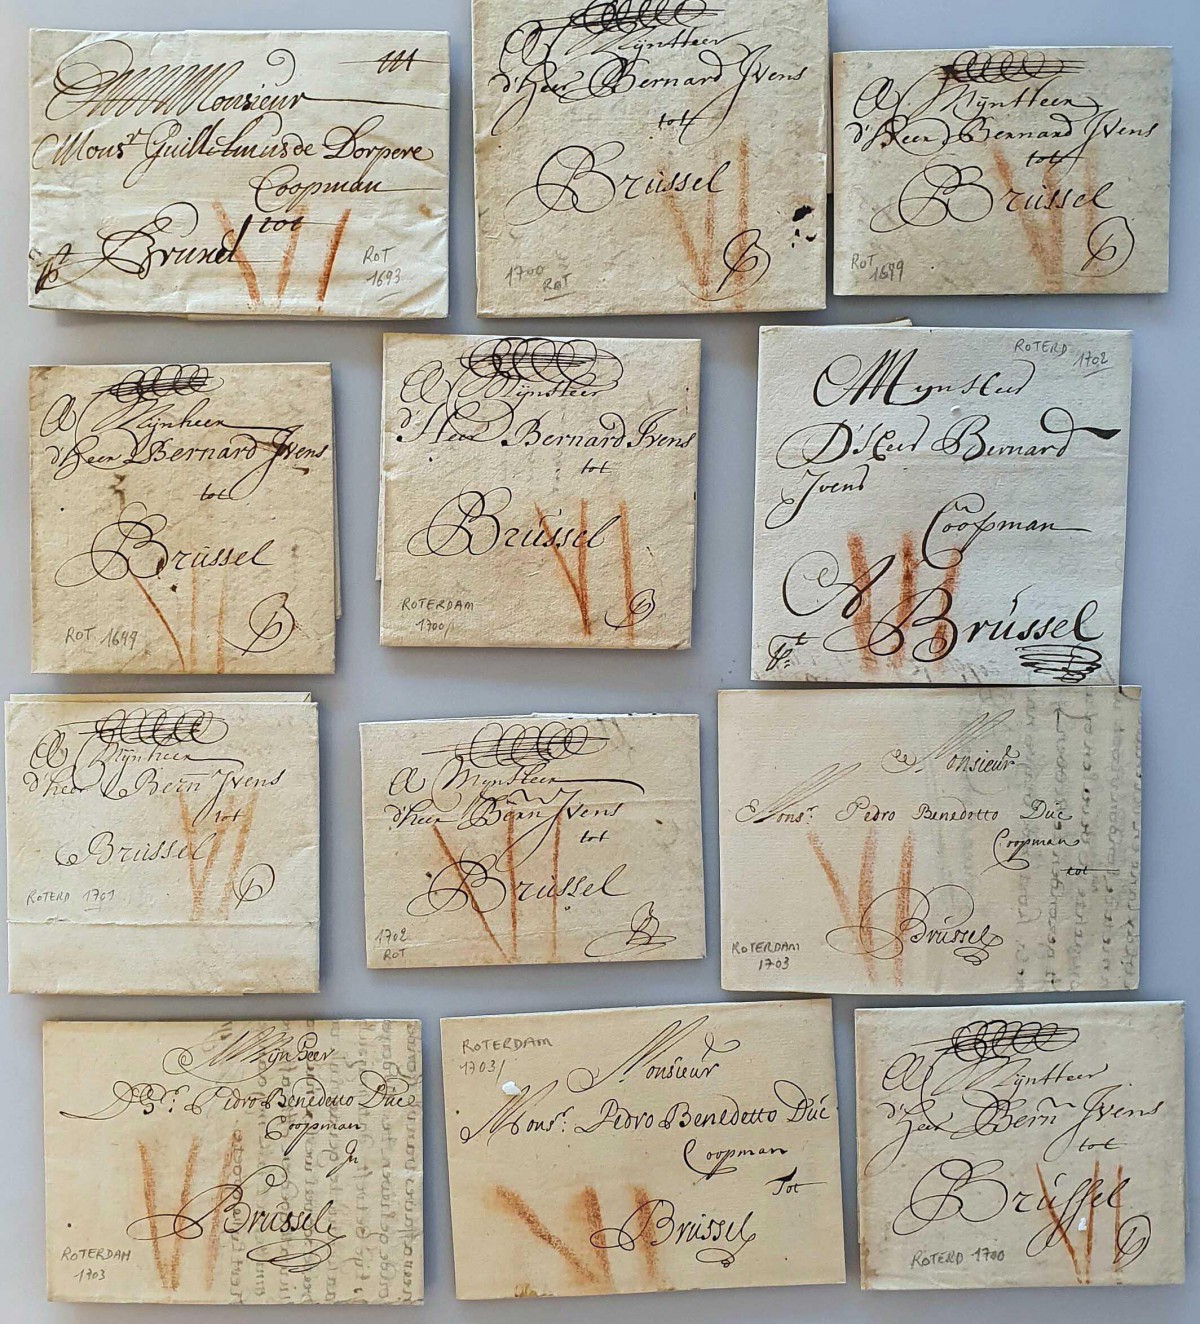 Monsieur
Mons.r Guillelmus de Dorpere
Coopman
tot
VII
ROT
1693
A Mijnheer
d'heer Bernard Ivens
tot
Brüssel
VII
1700
ROT
A Mijnheer
d'Heer Bernard Ivens
tot
Brüssel
VII
ROT
1699
A Mijnheer
d'heer Bernard Ivens
tot
Brüssel
VII
ROT 1699
A Mijnheer
d'Heer Bernard Ivens
tot
Brüssel
VII
ROTERDAM
1700
ROTERD 1702
Mijn Heer
D'Heer Bernard
Ivens
Coopman
A Brüssel
VII
A Mijnheer
d'heer Bern Ivens
tot
Brüssel
VII
ROTERD 1701
A Mijnheer
d'heer Bern Ivens
tot
Brüssel
VII
1702
ROT
Monsieur
Mons.r Pedro Benedetto Duc
Coopman
tot
Brüssel
VII
ROTERDAM
1703
Mijn Heer
Pedro Benedetto Duc
Coopman
In
Brüssel
VII
ROTERDAM
1703
ROTERDAM
1703
Monsieur
Mons.r Pedro Benedetto Duc
Coopman
Tot
Brüssel
VII
A Mijnheer
d'heer Bern Ivens
tot
Brüssel
VII
ROTERD 1700